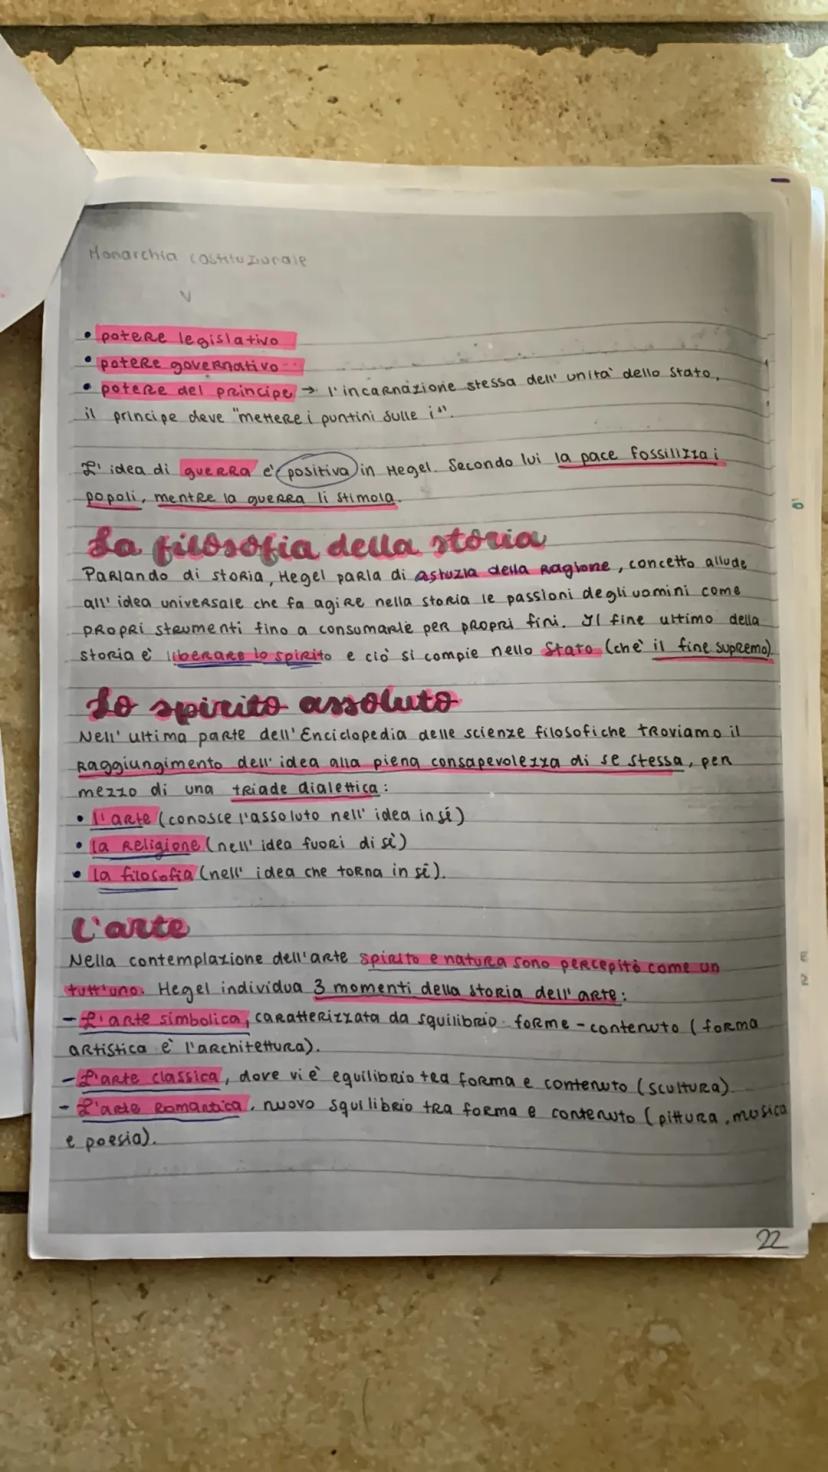 Monarchia costituzionale
V
• potere legislativo
• potere governativo
• potere del principe → l'incarnazione stessa dell' unita' dello Stato,
il principe deve "mettere i puntini sulle i".
L' idea di guerra e' positiva in Hegel. Secondo lui la pace fossilizza i
popoli, mentre la guerra li stimola.
La filosofia della storia
Parlando di storia, Hegel parla di astuzia della Ragione, concetto allude
all' idea universale che fa agire nella storia le passioni degli uomini come
propri strumenti fino a consumarle per propri fini. Il fine ultimo della
storia e' liberare lo spirito e cio' si compie nello Stato (che' il fine supremo)
Lo spirito assoluto
Nell' ultima parte dell' Enciclopedia delle scienze filosofiche troviamo il
raggiungimento dell' idea alla piena consapevolezza di se stessa, per
mezzo di una triade dialettica:
• l'arte (conosce l'assoluto nell' idea in sé)
• la religione (nell' idea fuori di sè)
• la filosofia (nell' idea che torna in sè).
L'arte
Nella contemplazione dell'arte spirito e natura sono percepito come un
tutt'uno. Hegel individua 3 momenti della storia dell' arte:
- L'arte simbolica, caratterizzata da squilibrio forme - contenuto (forma
artistica è l'architettura).
- L'arte classica, dove vi è equilibrio tra forma e contenuto (scultura)
- L'arte romantica, nuovo squilibrio tra forma e contenuto (pittura, musica
e poesia).
22